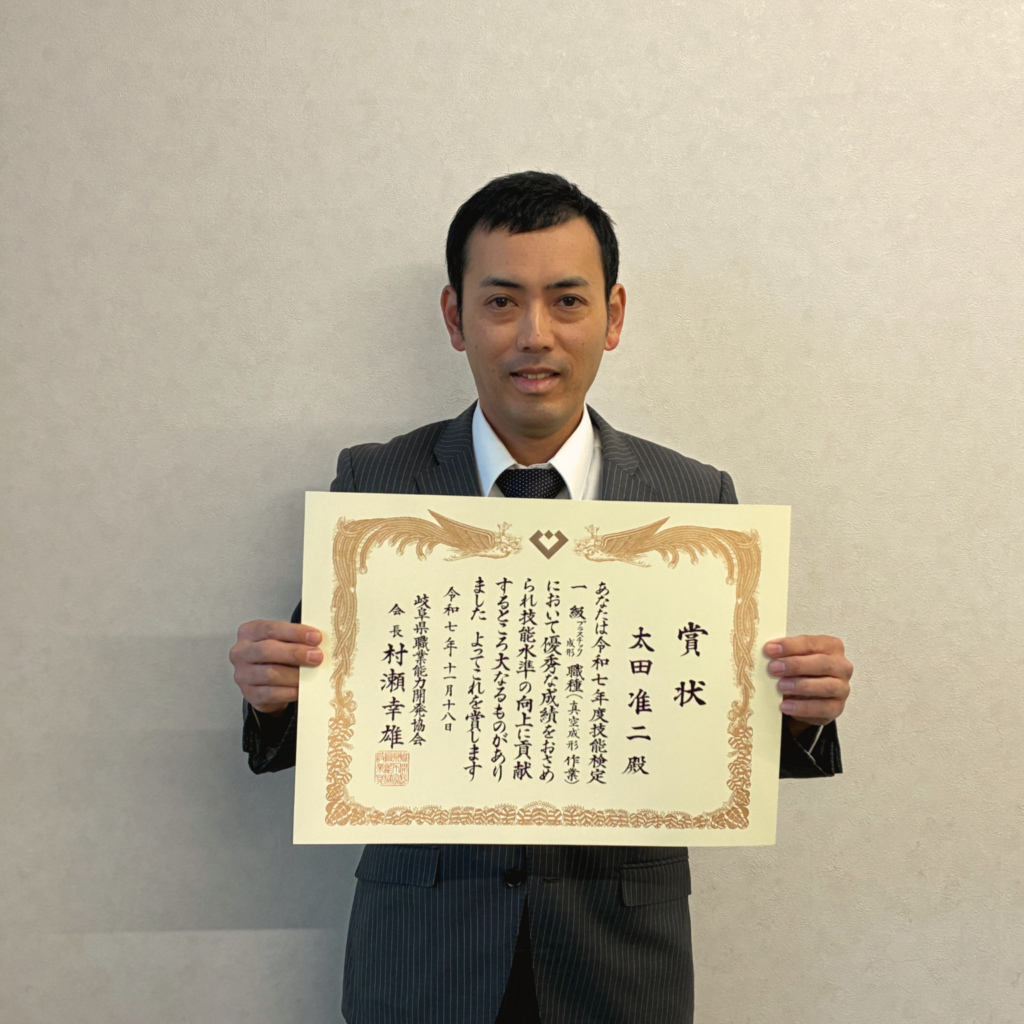 賞状
太田准二殿
あなたは令和七年度技能検定
一級プラスチック成形職種(真空成形作業)
において優秀な成績をおさめ
られ技能水準の向上に貢献
するところ大なるものがあり
ました よってこれを賞します
令和七年十一月十八日
岐阜県職業能力開発協会
会長 村瀬幸雄